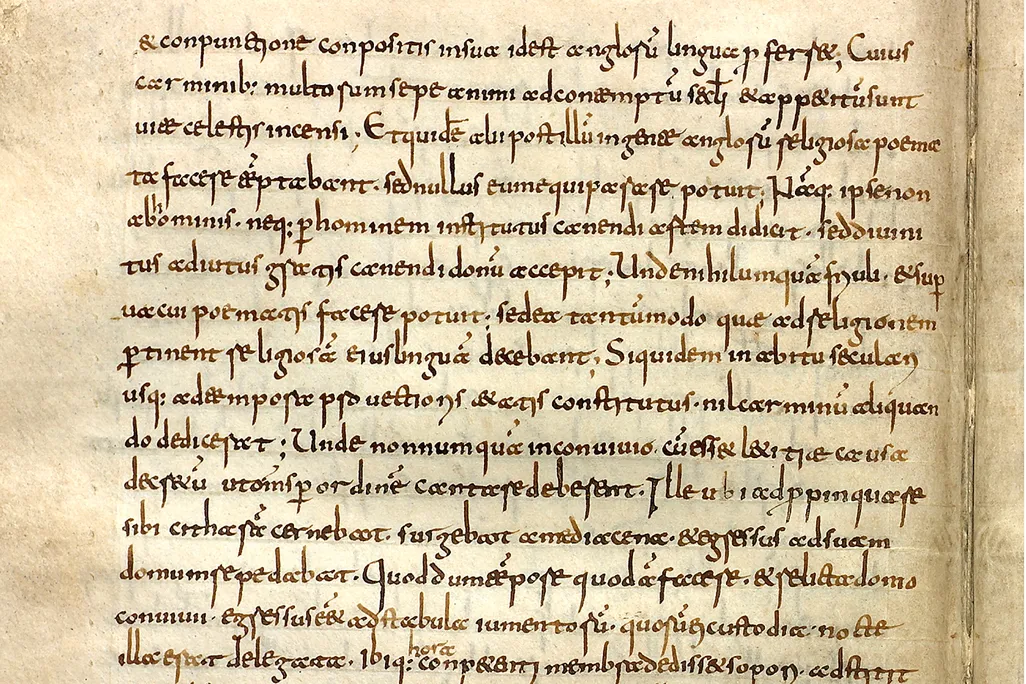 & conpunctione conpositis insua idest anglorū lingua ꝑferr&; Cuius
carminib: multorum sepe animi adcontemptū sęcłi &app&itū sunt
uitae celestis incensi; Etquidē alii postillū ingente anglorū religiosa poema
ta facere tēptabant. sednullus eum equiparare potuit; Nāq: ipse non
ab hominis. neq: ꝑ hominem institutus canendi artem didicit. seddiuini
tus adiutus gratis canendi donū accepit; Unde nihil umquā friuoli. & suꝑ
uacui poematis facere potuit. sed ea tantūmodo quae adreligionem
ꝑtinent religiosā eius linguā decebant; Siquidem in abitu seculari
usq: ad tempora prouectioris aetatis constitutus. nil carminū aliquan
do dedicerat; Unde nonnumquā inconuiuio. cū ess& laetitiae causa
decretū utomīs ꝑ ordinē cantare deberent. Ille ubi adꝓpinquare
sibi citharā cernebat. surgebat amedia cena. & egressus adsuam
domum repedabat. Quod dum tēpore quodā facere. & relicta domo
conuiuii. egressus ēē& adstabula iumentorū. quorū ei custodia nocte
illa erat delegata. Ibiq: hora conp&enti membra dediss& sopori. adstitit